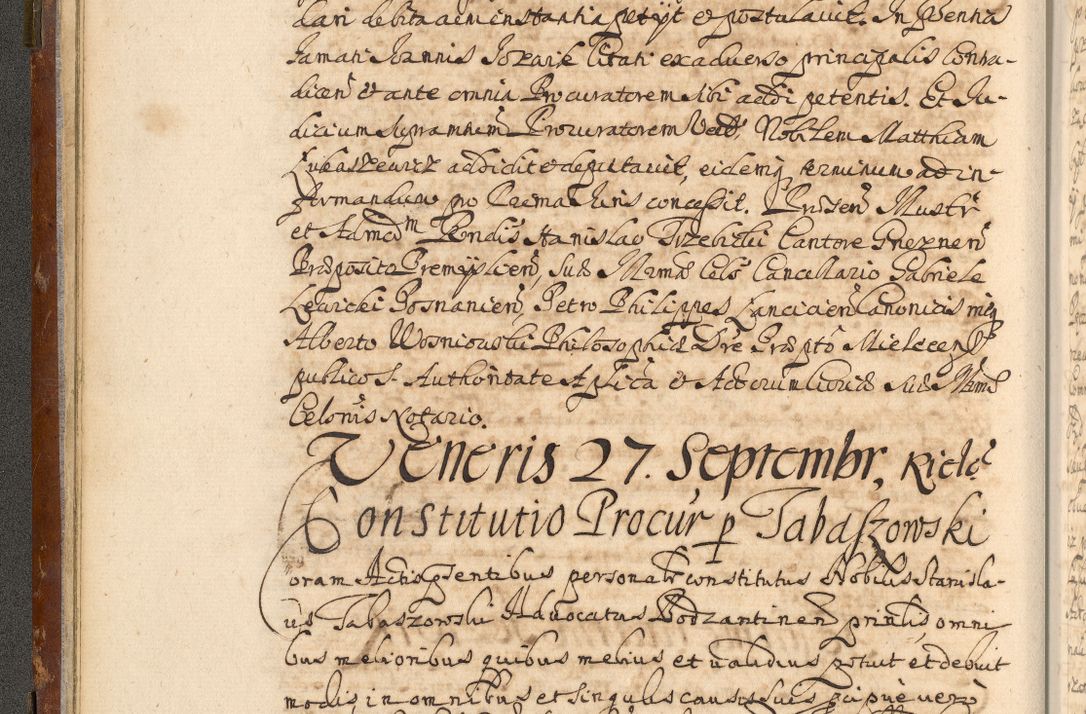 dari debita cum instantia petijt et postulavit. In pñentia
Famati Ioannis Iozarik Citati ex adverso principalis Contra-
dicen̄ et ante omnia Procuratorem sibi addi petentis. Et Iu-
dicium Procuratorem Nobilem Matthiam
Lukaszewicz addidit et deputavit, eidemq terminum ad in-
formandum pro Crema Iuris concessit. Pr̄sen̄ Illustr̄
et Admod̄m Rendis Stanislao Trzebicki Cantore Gneznen̄
Præposito Premyslien̄, Suæ Illmæ Cels Cancellario Gabriele
Lewicki Posnanien̄, Petro Philippes Lancicien̄ Canonicis mq
Alberto Wosniowski Philosophiæ Dre Præpto Mielecen̄
publico S. Authoritate Aplica et Actorum Curiæ Suæ Illmæ
Celsnis Notario.
Veneris 27. Septembr, Kielc̄
Constitutio Procur̄ p Tabaszowski
oram Actis pñsentibus personalr constitutus Nobilis Stanisla-
us Tabaszowski Advocatus Bodzantinen̄ prinlis, omni
bus melioribus quibus melius et validius potuit et debuit
modis, in omnibus et singulis causis suis pcipue vero